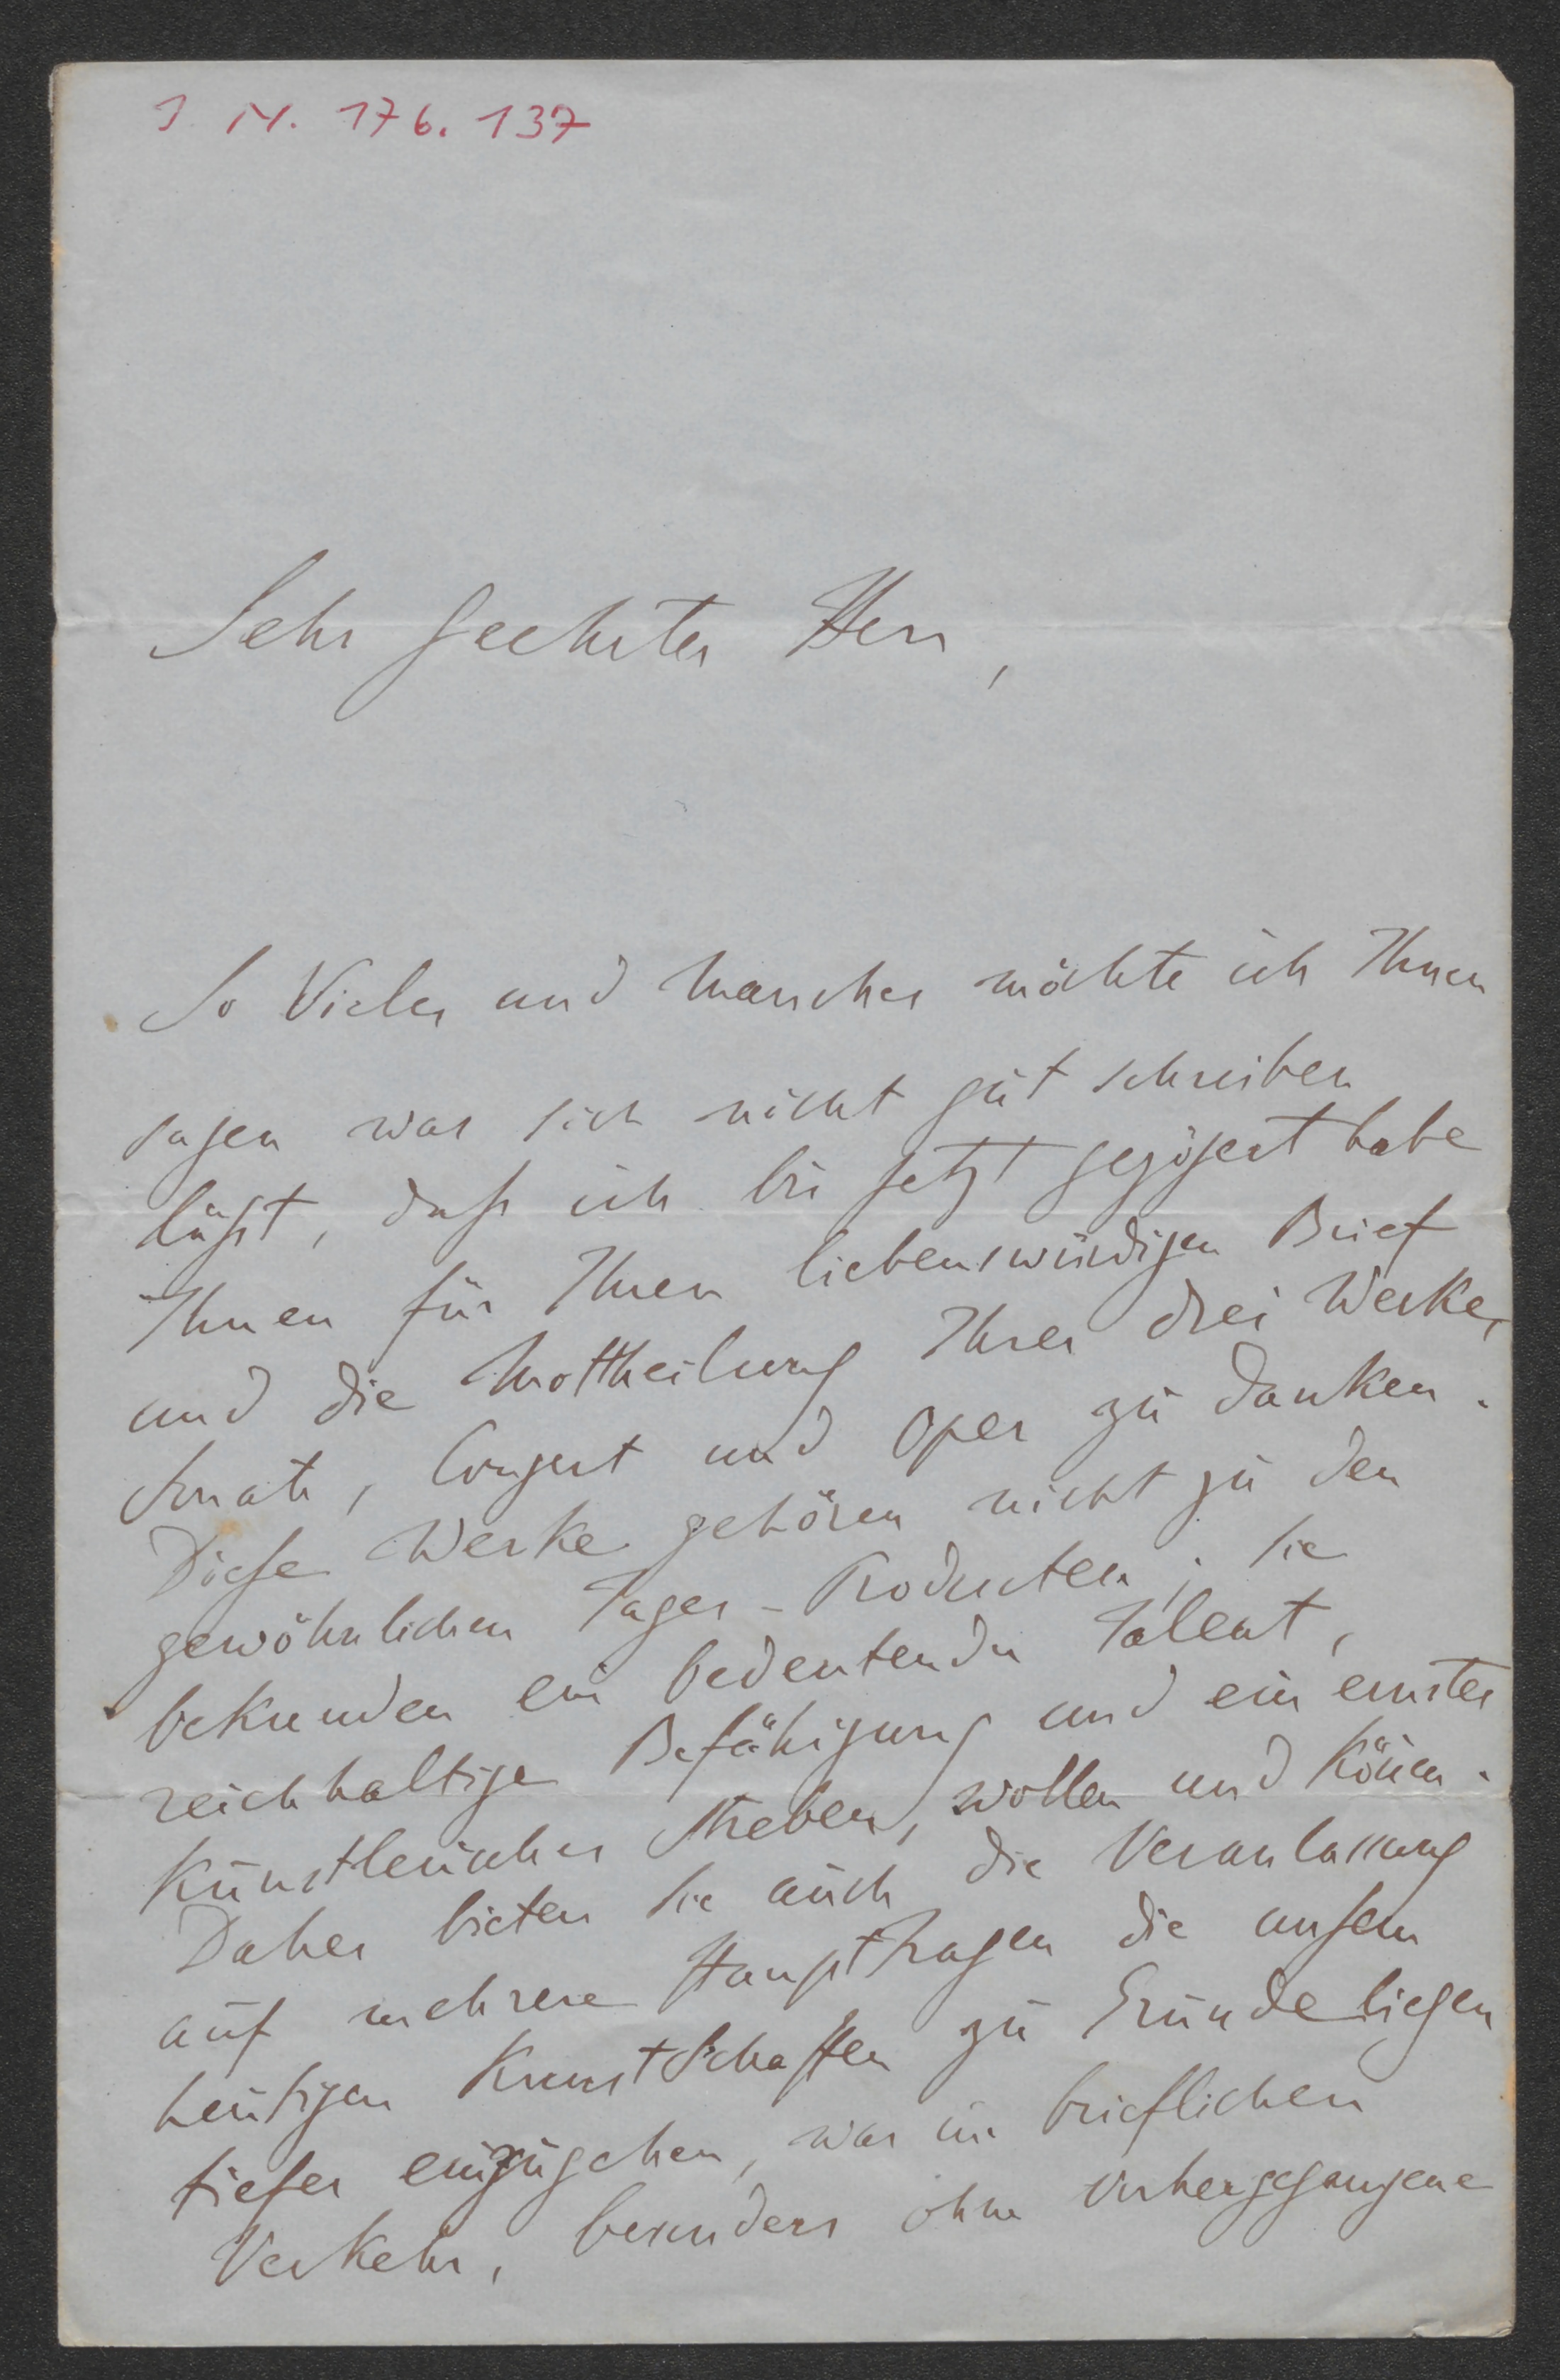 I. N. 176.137
Sehr geehrter Herr,
So Vieles und Manches möchte ich Ihnen
sagen was sich nicht gut schreiben
läßt, daß ich bis jetzt gezögert habe
Ihnen für Ihren liebenswürdigen Brief
und die Mittheilung Ihrer drei Werke,
Sonate, Conzert und Oper zu danken.
Diese Werke gehören nicht zu den
gewöhnlichen Tages-Producten; sie
bekunden ein bedeutendes Talent,
reichhaltige Befähigung und ein ernstes
künstlerisches Streben, wollen und Können.
Daher bieten sie auch die Veranlassung
auf mehrere Hauptfragen die unserm
heutigen Kunst Schaffen zu Grunde liegen
tiefer einzugehen, was im brieflichen
Verkehr, besonders ohne vorhergegangene